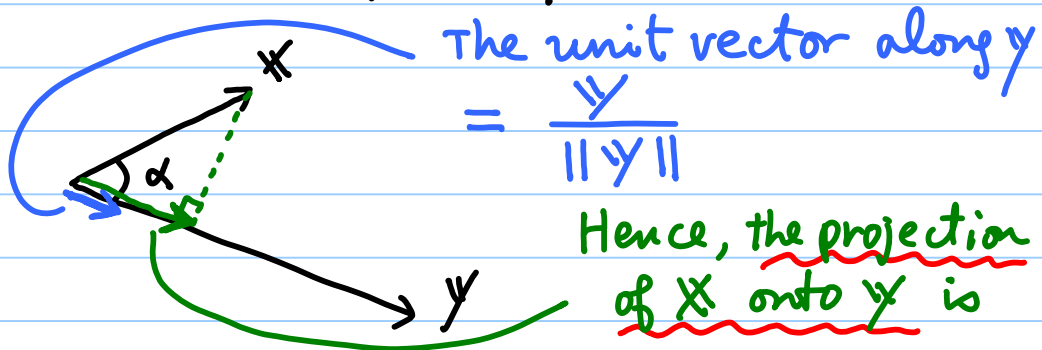 The unit vector along 𝕪
𝕩
= 𝕪 / ||𝕪||
α
Hence, the projection
of 𝕩 onto 𝕪 is
𝕪